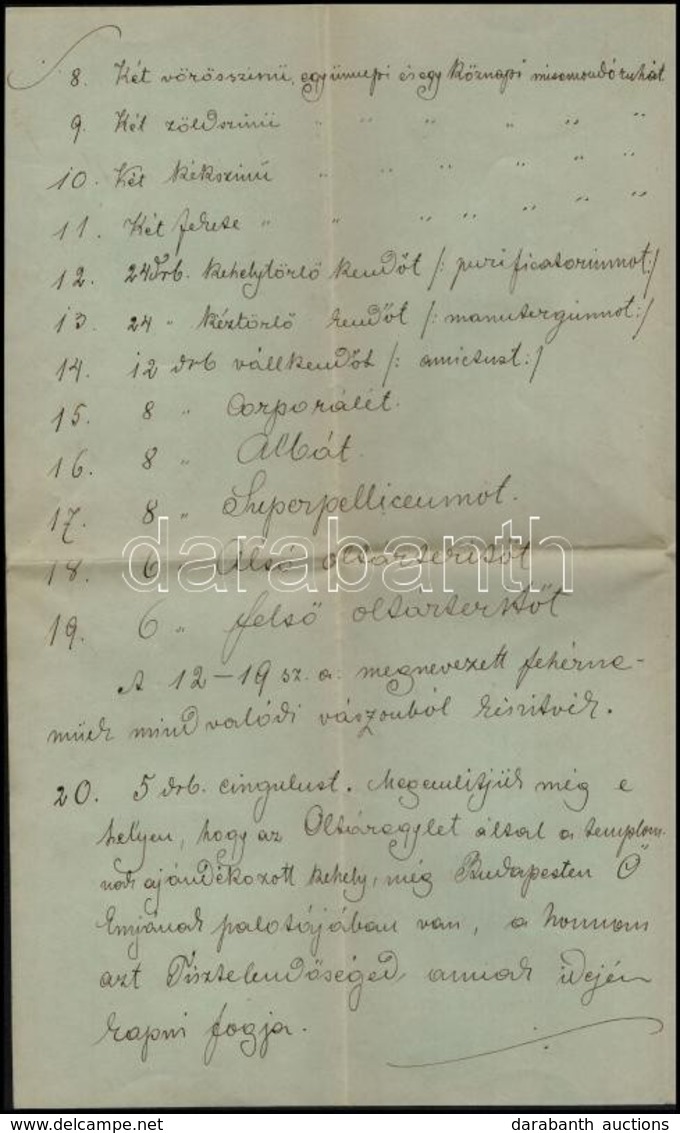 8. Két vörösszinü, egy ünnepi és egy köznapi misemondó ruhát
9. Két zöldszinü " " " " " "
10. Két kékszinü " " " " " "
11. Két fekete " " " " " " "
12. 24 drb. kehelytörlő kendőt /: purificatoriumot:/
13. 24 " kéztörlő kendőt /: manutergiumot:/
14. 12 drb vállkendőt /: amictust:/
15. 8 " Corporálét.
16. 8 " Albát.
17. 8 " Superpelliceumot.
18. 6 " Alsó oltárteritőt
19. 6 " felső oltárteritőt
A 12–19 sz. a. megnevezett fehérne-
müek mind valódi vászonból készitvék.
20. 5 drb. cingulust. Megemlitjük még e
helyen, hogy az Oltáregylet által a templom-
nak ajándékozott kehely, még Budapesten Ő
Emjának palotájában van, a honnam
azt Tisztelendőséged annak idején
kapni fogja.
darabanth
www.darabanth.com
darabanth auctions